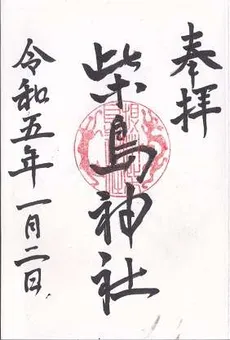 奉拝
柴島神社
令和五年一月二日